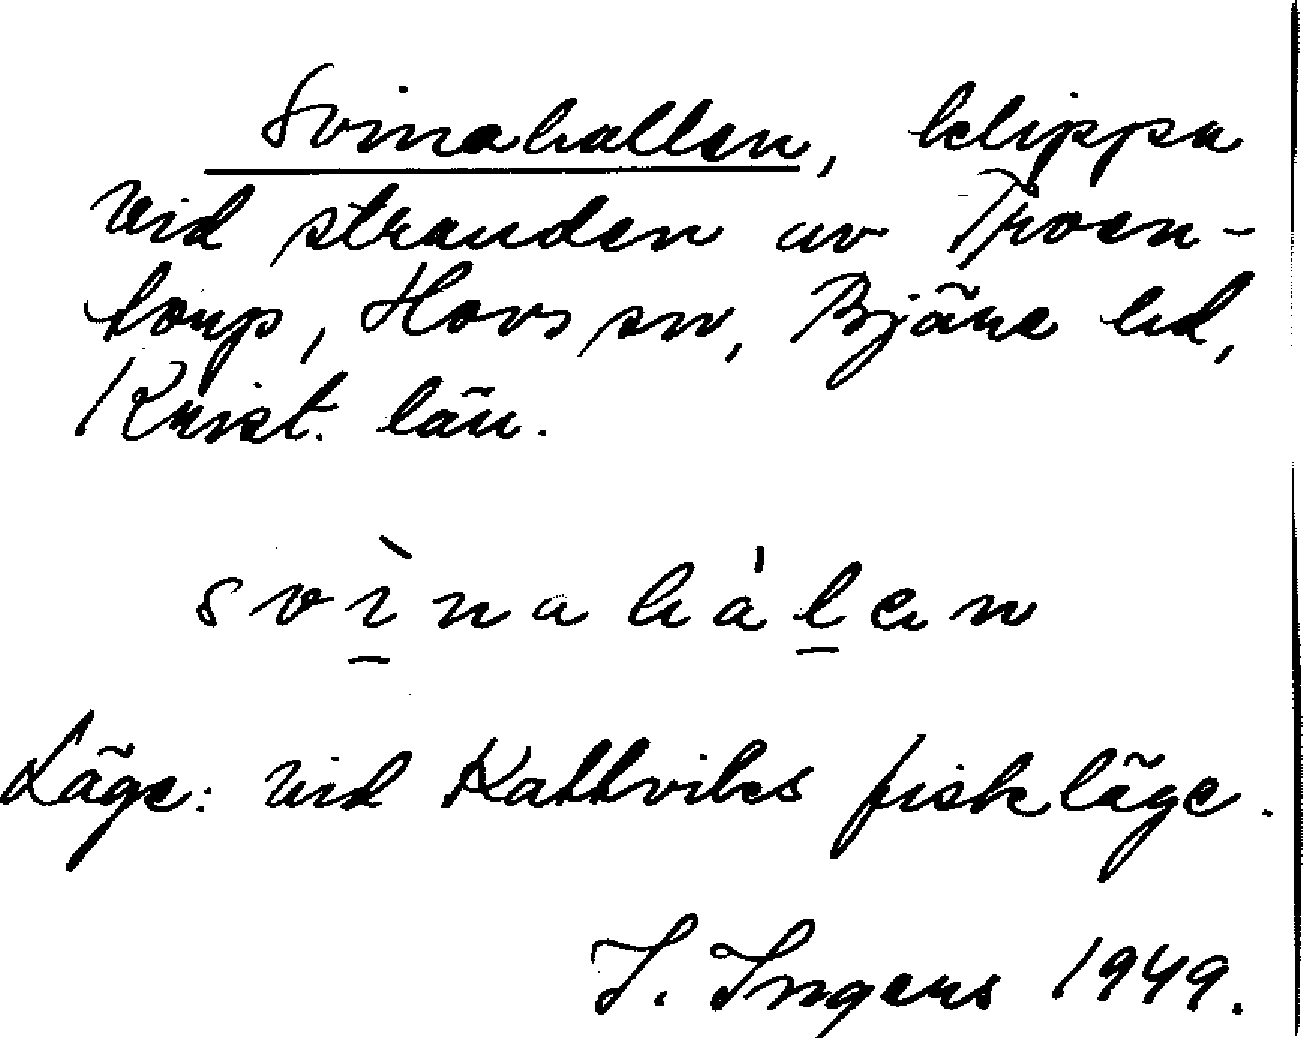 Svinahallen, klippa
vid stranden av Troen-
torp, Hovs sn, Bjäre hd,
Krist. län.
svìnahàlen
Läge: vid Kattviks fiskläge.
I. Ingers 1949.